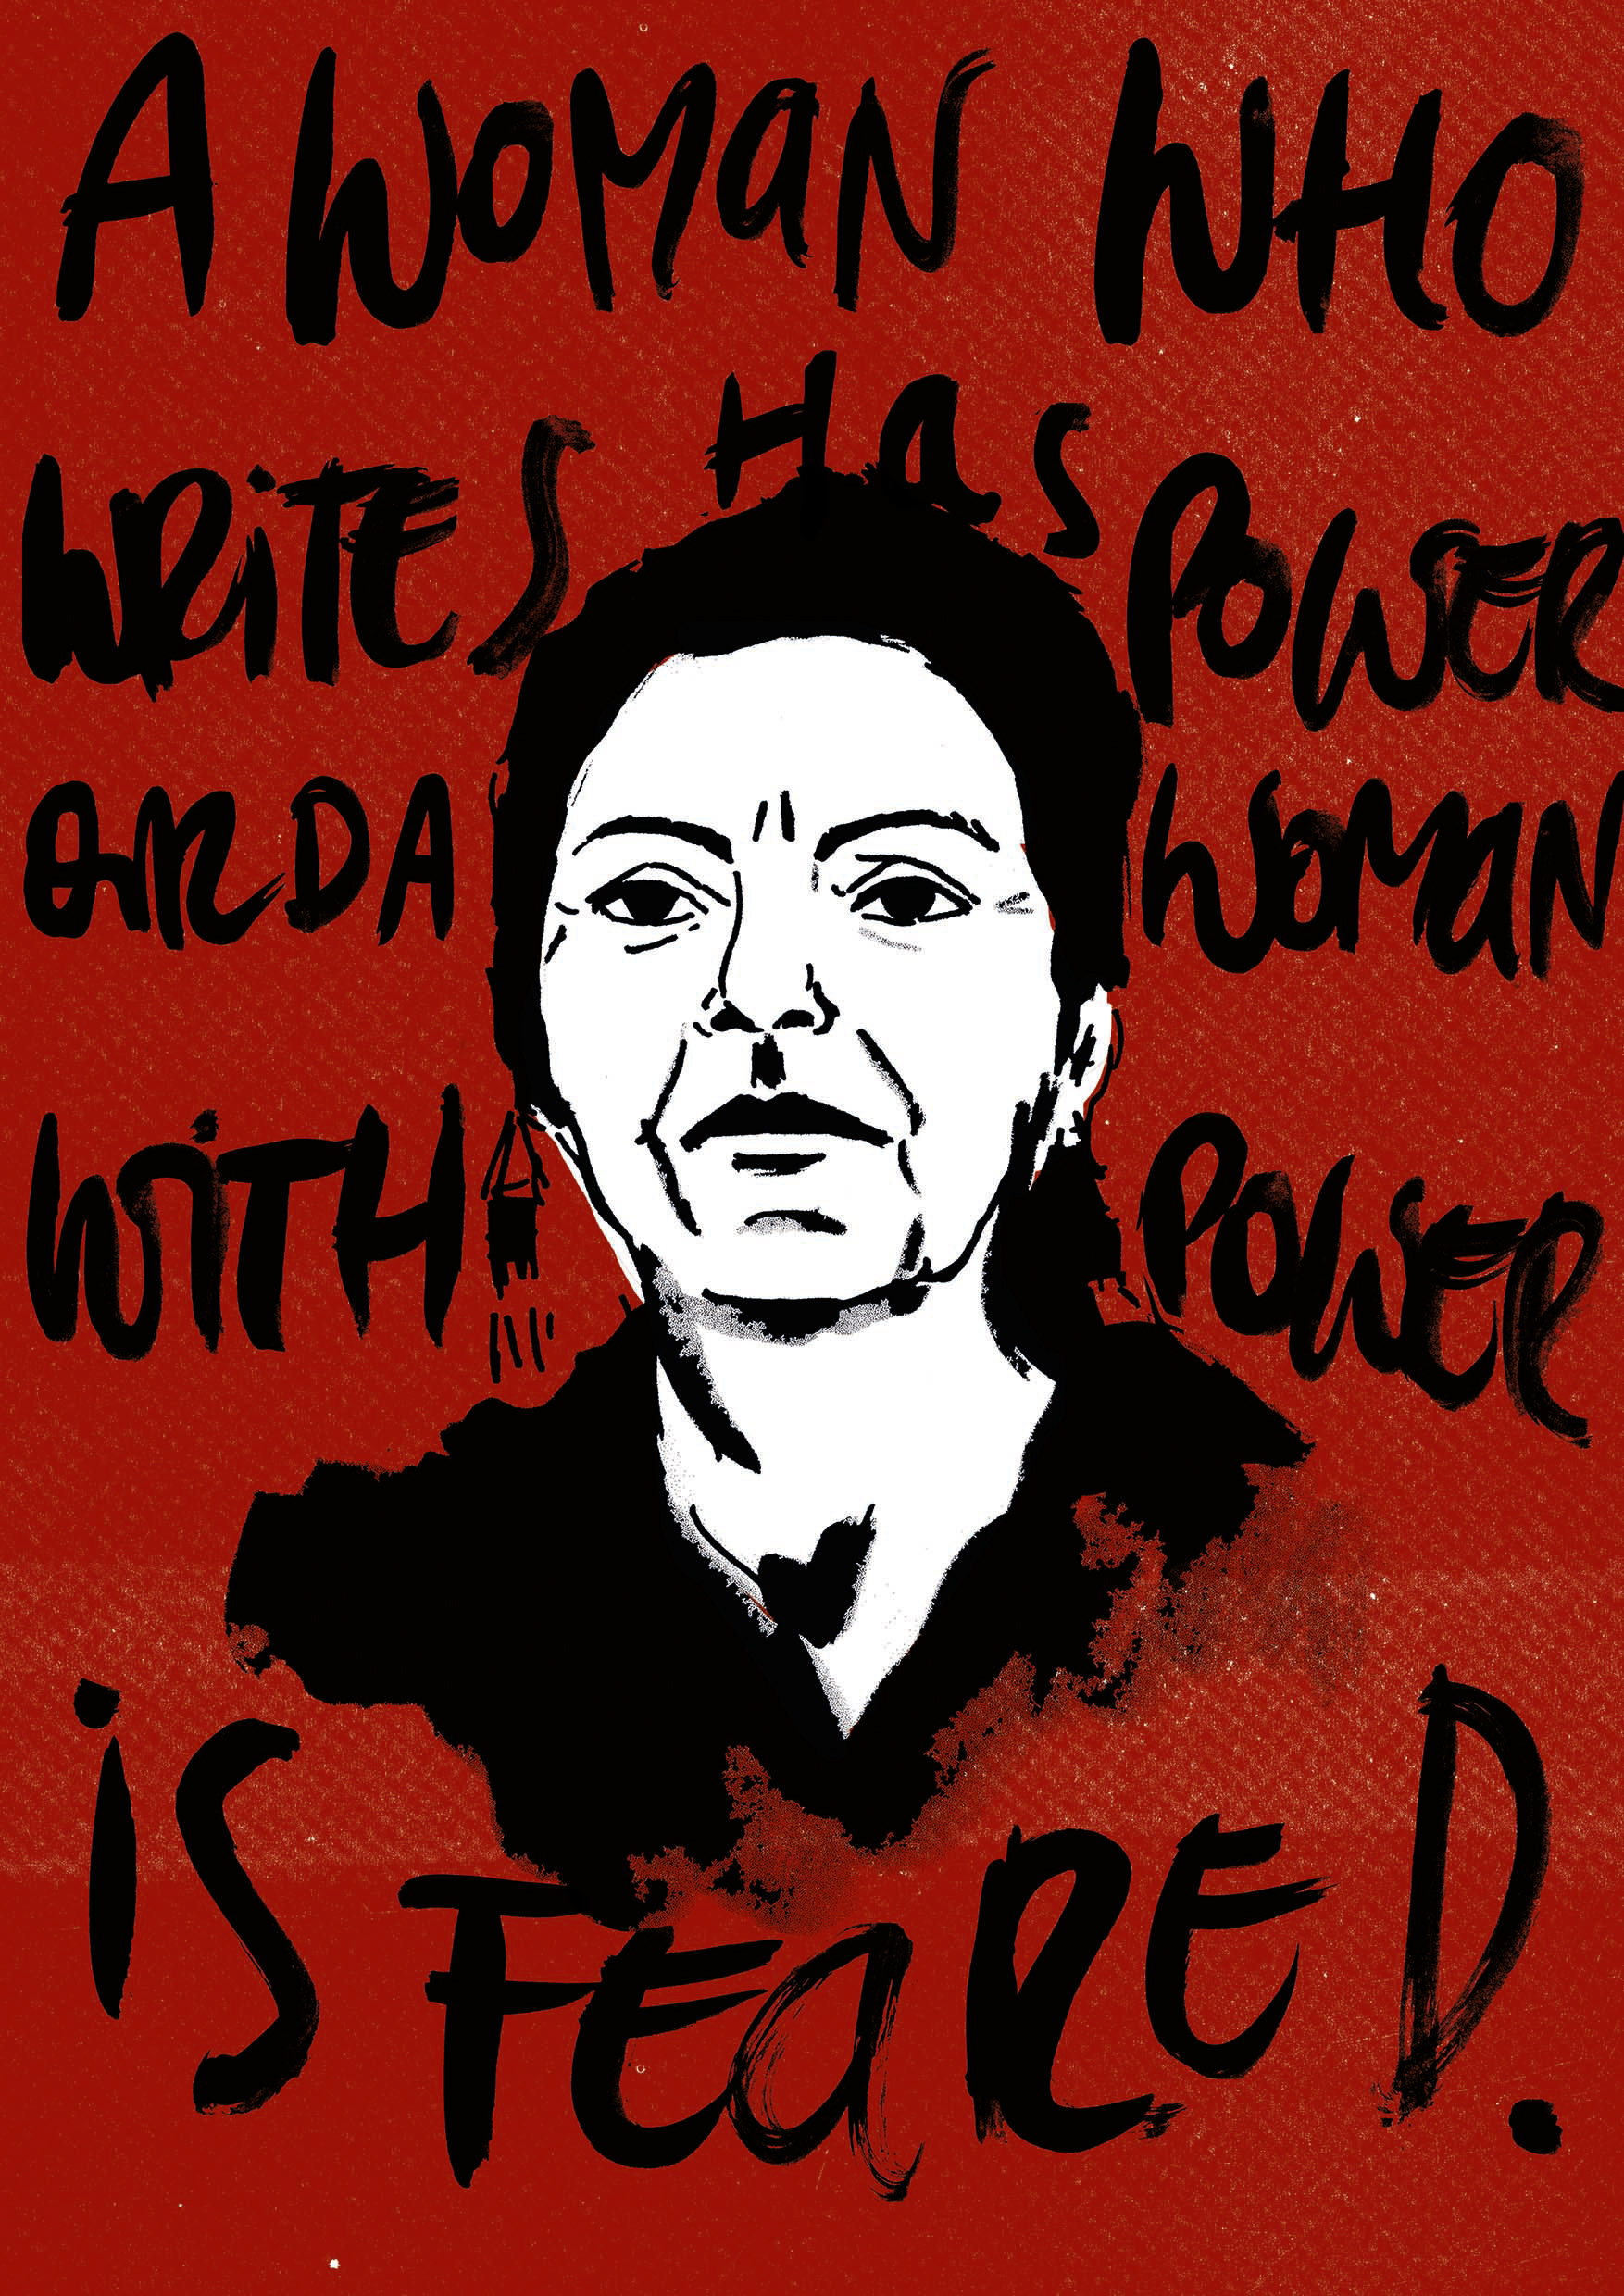 A WOMAN WHO
WRITES HAS POWER
AND A WOMAN
WITH POWER
IS FEARED.